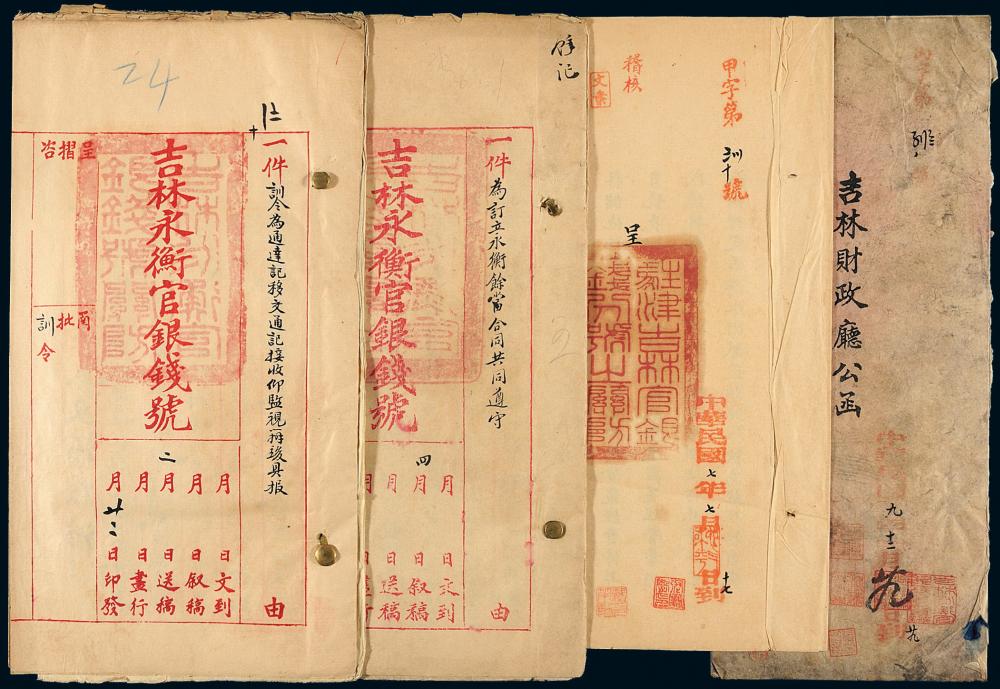 吉林財政廳公函
九
十二
月
甲字第
號
稽核
文案
呈
駐津吉林官銀錢分號之關防
中華民國七年七月
日到
十七
餘記
一件
為訂立永衡餘當合同共同遵守
由
吉林永衡官銀錢號
四
月 日文到
月 日敘稿
月 日送稿
24
一件
訓令為通達記移文通記接收仰監視一冊竣具报
由
吉林永衡官銀錢號
呈摺咨
批
訓令
二
月 日文到
月 日敘稿
月 日送稿
月 日畫行
月廿二日印發